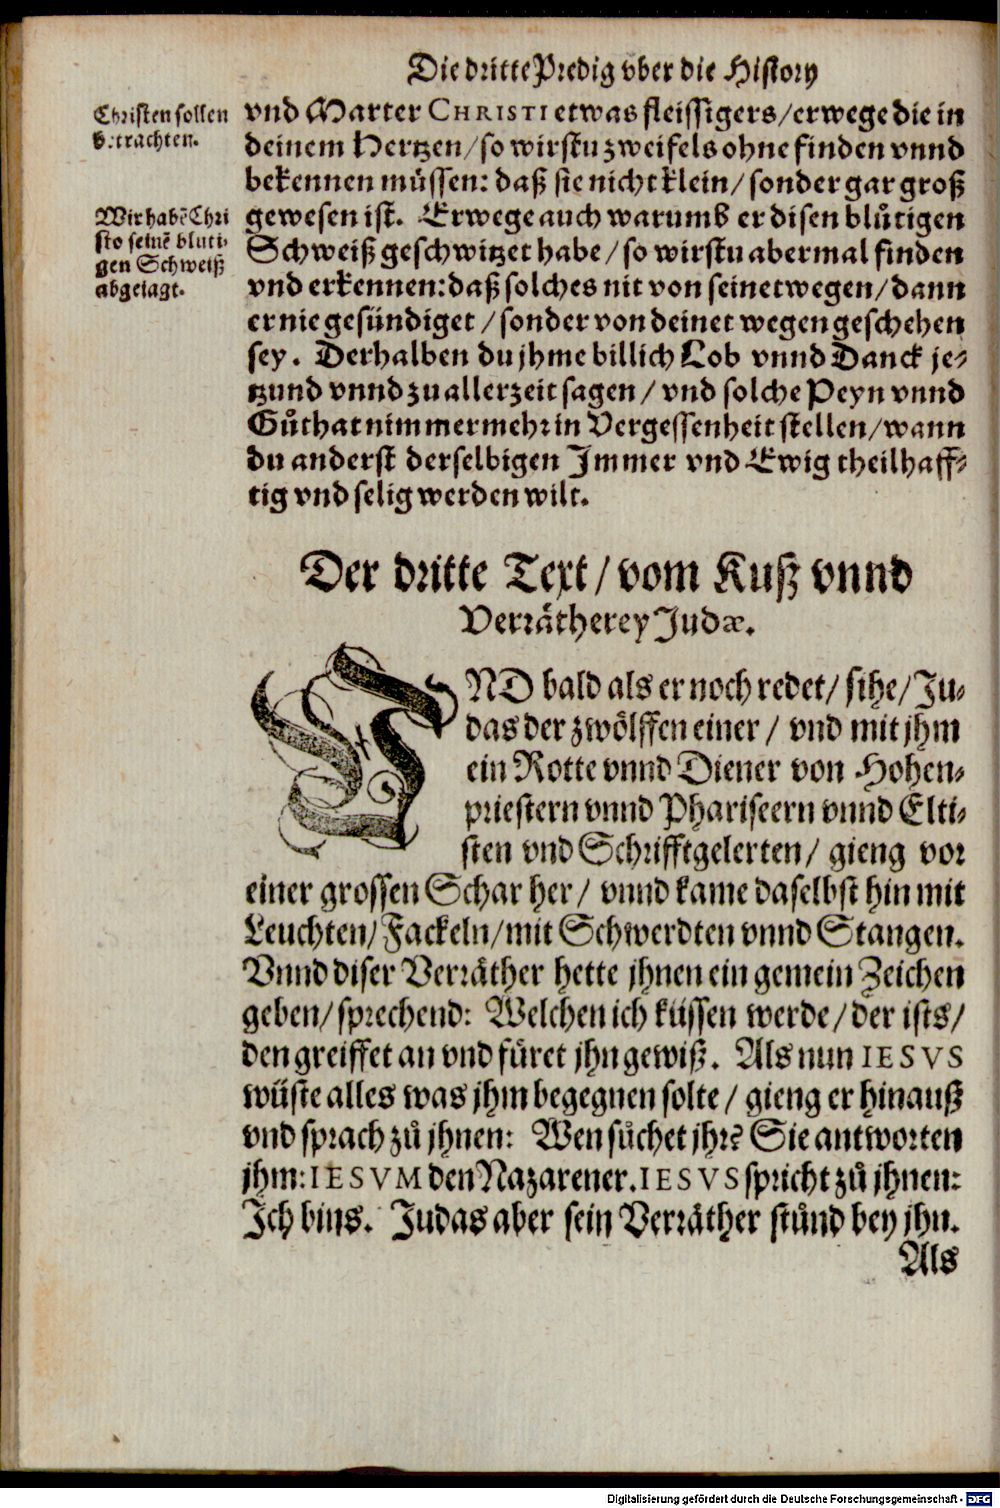 Die dritte Predig vber die History
Christen sollen
betrachten.
vnd Marter CHRISTI etwas fleissigers/ erwege die in
deinem Hertzen/ so wirstu zweifels ohne finden vnnd
bekennen müssen: daß sie nicht klein/ sonder gar groß
Wir habẽ Chri
sto seinẽ bluti-
gen Schweiß
abgejagt.
gewesen ist. Erwege auch warumb er disen blůtigen
Schweiß geschwitzet habe/ so wirstu abermal finden
vnd erkennen: daß solches nit von seinetwegen/ dann
er nie gesündiget/ sonder von deinet wegen geschehen
sey. Derhalben du jhme billich Lob vnnd Danck je-
tzund vnnd zu aller zeit sagen/ vnd solche Peyn vnnd
Gůthat nimmermehr in Vergessenheit stellen/ wann
du anderst derselbigen Immer vnd Ewig theilhaff-
tig vnd selig werden wilt.
Der dritte Text/ vom Kuß vnnd
Verrätherey Judæ.
VND bald als er noch redet/ sihe/ Ju-
das der zwölffen einer/ vnd mit jhm
ein Rotte vnnd Diener von Hohen-
priestern vnnd Phariseern vnnd Elti-
sten vnd Schrifftgelerten/ gieng vor
einer grossen Schar her/ vnnd kame daselbst hin mit
Leuchten/ Fackeln/ mit Schwerdten vnnd Stangen.
Vnnd diser Verräther hette jhnen ein gemein Zeichen
geben/ sprechend: Welchen ich küssen werde/ der ists/
den greiffet an vnd füret jhn gewiß. Als nun IESVS
wüste alles was jhm begegnen solte/ gieng er hinauß
vnd sprach zů jhnen: Wen sůchet jhr? Sie antworten
jhm: IESVM den Nazarener. IESVS spricht zů jhnen:
Ich bins. Judas aber sein Verräther stůnd bey jhn.
Als
Digitalisierung gefördert durch die Deutsche Forschungsgemeinschaft - DFG